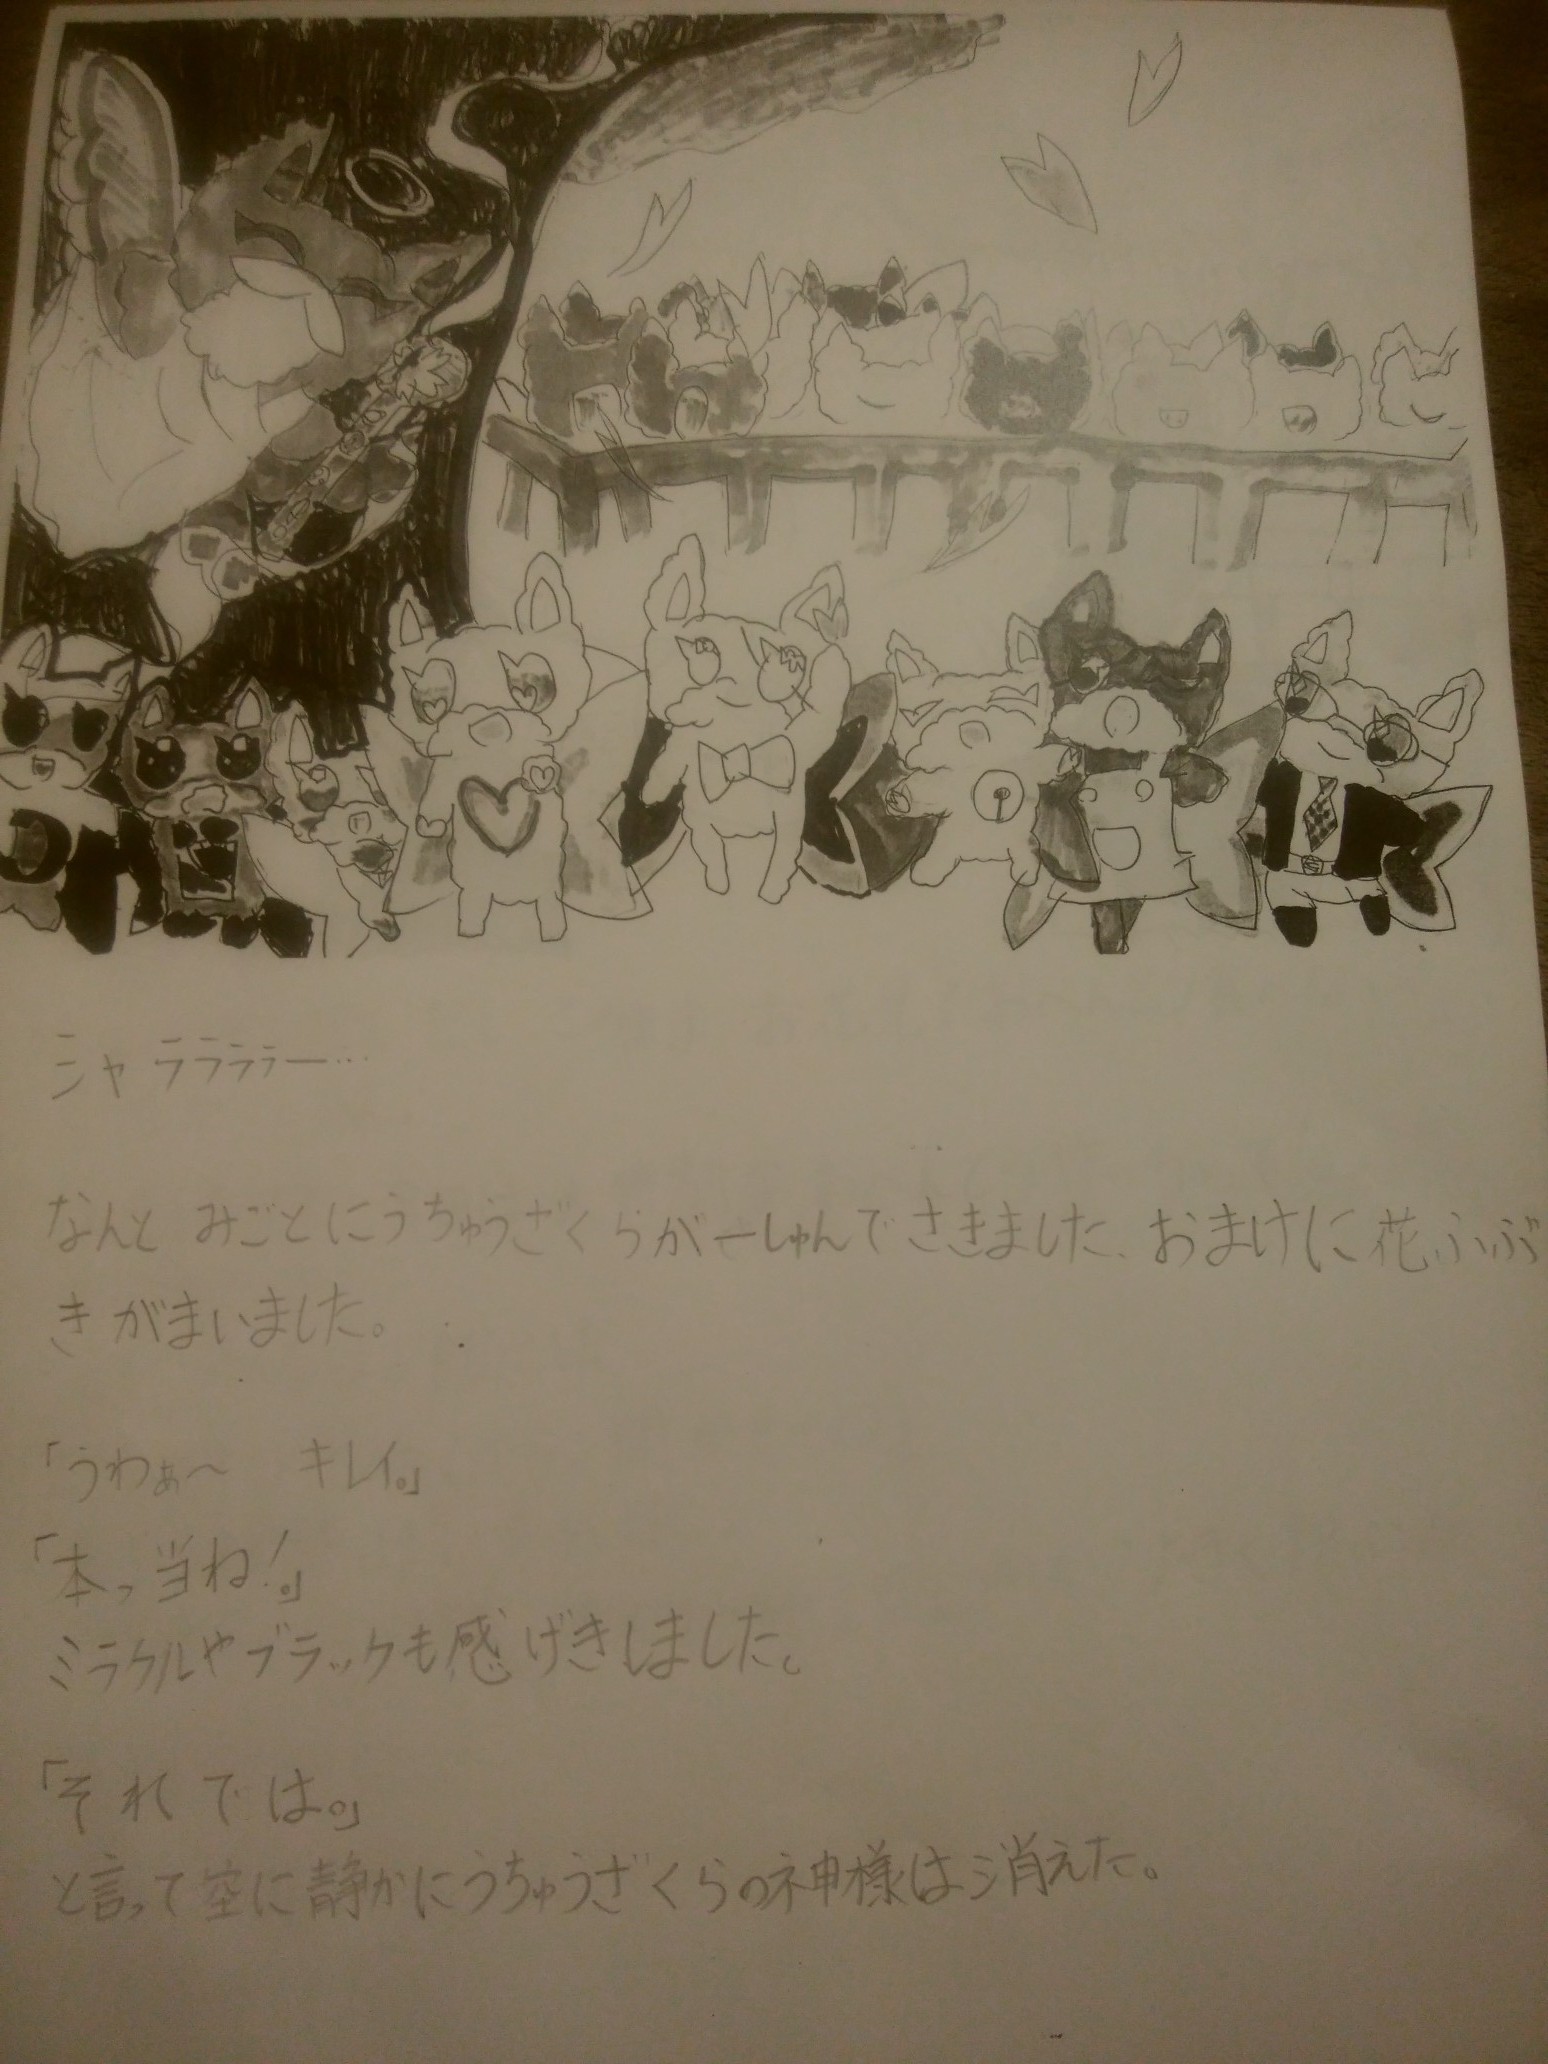 シャララララー…
なんと みごとにうちゅうざくらが一しゅんでさきました、おまけに花ふぶ
きがまいました。
「うわぁ〜 キレイ。」
「本っ当ね!。」
ミラクルやブラックも感げきしました。
「それでは。」
と言って空に静かにうちゅうざくらの神様は消えた。